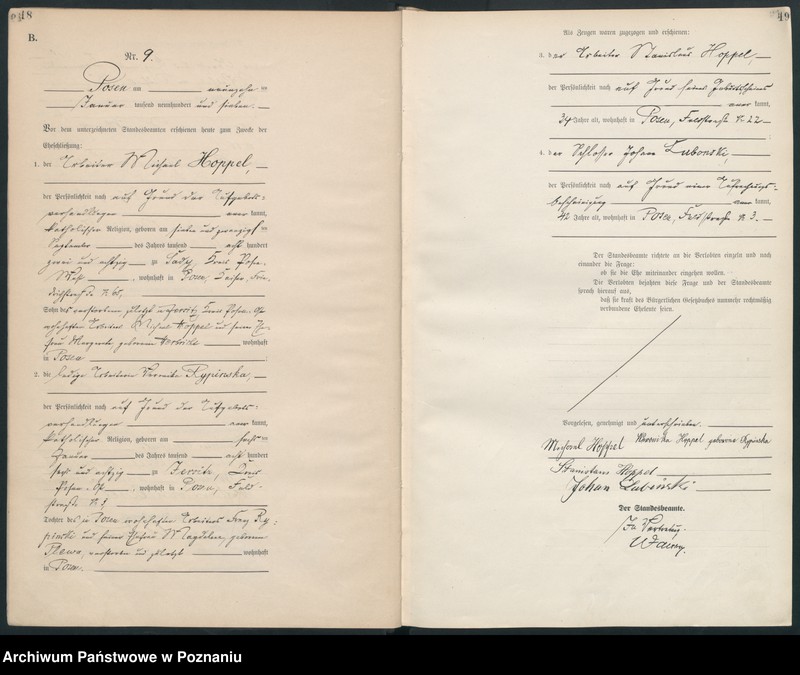 18
B.
Nr. 9.
Posen am neunzehn ten
Januar tausend neunhundert und sieben.
Vor dem unterzeichneten Standesbeamten erschienen heute zum Zwecke der
Eheschließung:
1. der Arbeiter Michael Hoppel,
der Persönlichkeit nach auf Grund der Aufgebots-
verhandlungen kannt,
katholischer Religion, geboren am sieben und zwanzigsten
September des Jahres tausend acht hundert
zwei und achtzig zu Kreis Posen
West, wohnhaft in Posen,
Sohn des verstorbenen, zuletzt in Jersitz, Kreis Posen-Ost
wohnhaften Arbeiters Michael Hoppel und seiner Ehe-
frau Margareta, geborenen wohnhaft
in Posen
2. die ledige Arbeiterin Veronika Rypinska,
der Persönlichkeit nach auf Grund der Aufgebots-
verhandlungen kannt,
katholischer Religion, geboren am sechsten
Januar des Jahres tausend acht hundert
sechs und achtzig zu Jersitz, Kreis
Posen-Ost, wohnhaft in Posen, Feld-
straße N.
Tochter des in Posen wohnhaften Arbeiters Franz Ry-
pinski und seiner Ehefrau Magdalena, geborenen
verstorben und zuletzt wohnhaft
in Posen.
19
Als Zeugen waren zugezogen und erschienen:
3. der Arbeiter Stanislaus Hoppel,
der Persönlichkeit nach auf Grund seines Geburtsscheines
kannt,
34 Jahre alt, wohnhaft in Posen, Feldstraße N. 22
4. der Schlosser Johann Lubonski,
der Persönlichkeit nach auf Grund einer
bescheinigung kannt,
42 Jahre alt, wohnhaft in Posen, Feldstraße N. 3.
Der Standesbeamte richtete an die Verlobten einzeln und nach
einander die Frage:
ob sie die Ehe miteinander eingehen wollen.
Die Verlobten bejahten diese Frage und der Standesbeamte
sprach hierauf aus,
daß sie kraft des Bürgerlichen Gesetzbuches nunmehr rechtmäßig
verbundene Eheleute seien.
Vorgelesen, genehmigt und unterschrieben.
Michael Hoppel Weronika Hoppel geborene Rypinska
Stanislaus Hoppel
Johan Lubónski
Der Standesbeamte.
In Vertretung.
Archiwum Państwowe w Poznaniu